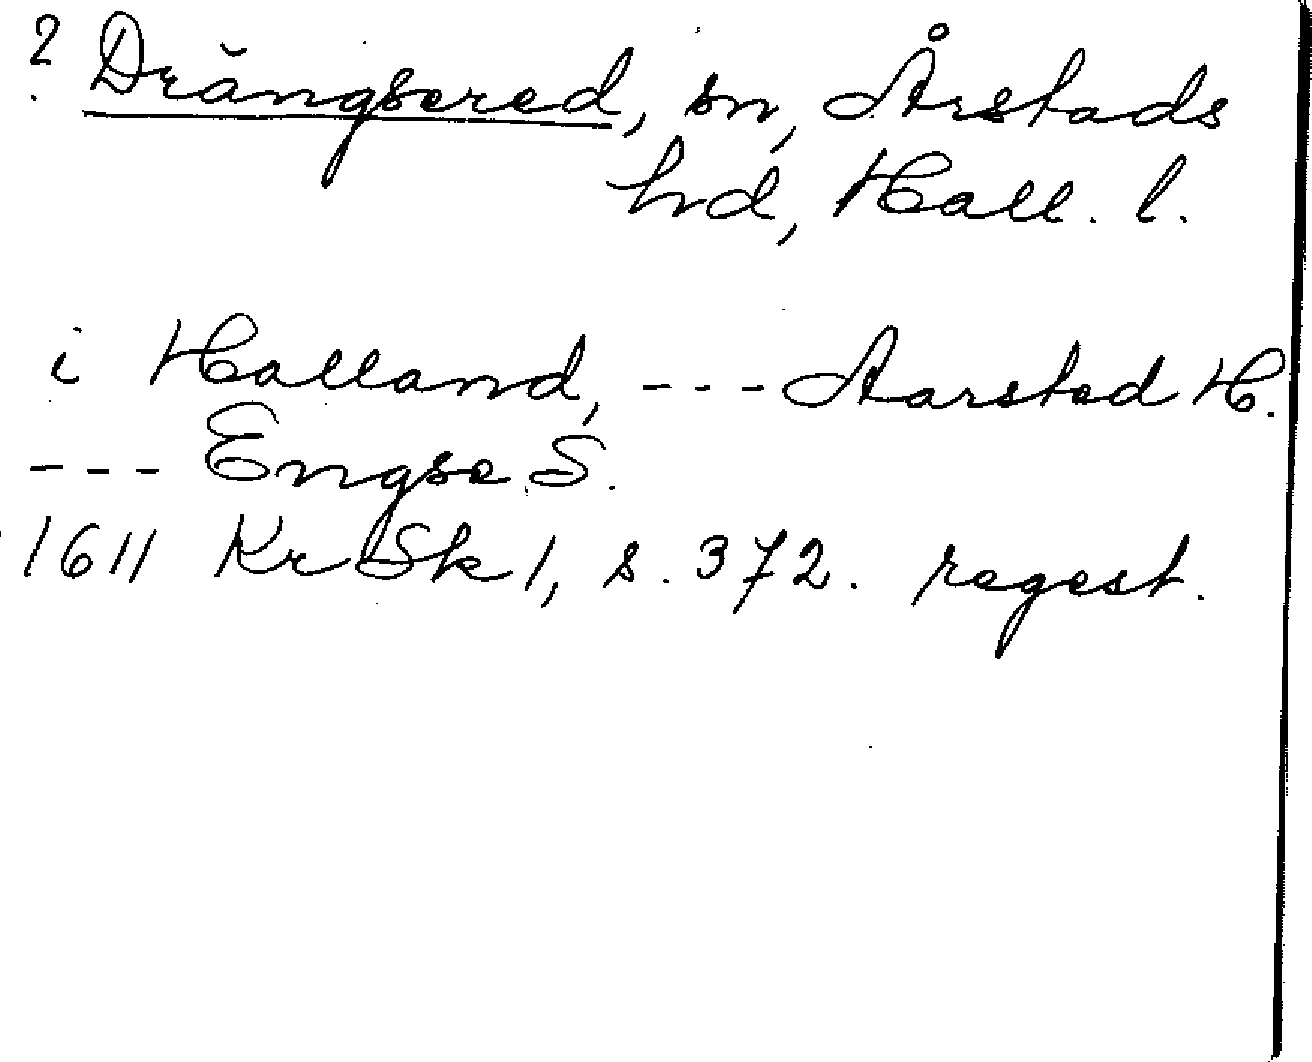 ? Drängsered, sn, Årstads
hd, Hall. l.
i Halland, --- Aarsted H.
--- Engse S.
1611 KrSk 1, s. 372. regest.